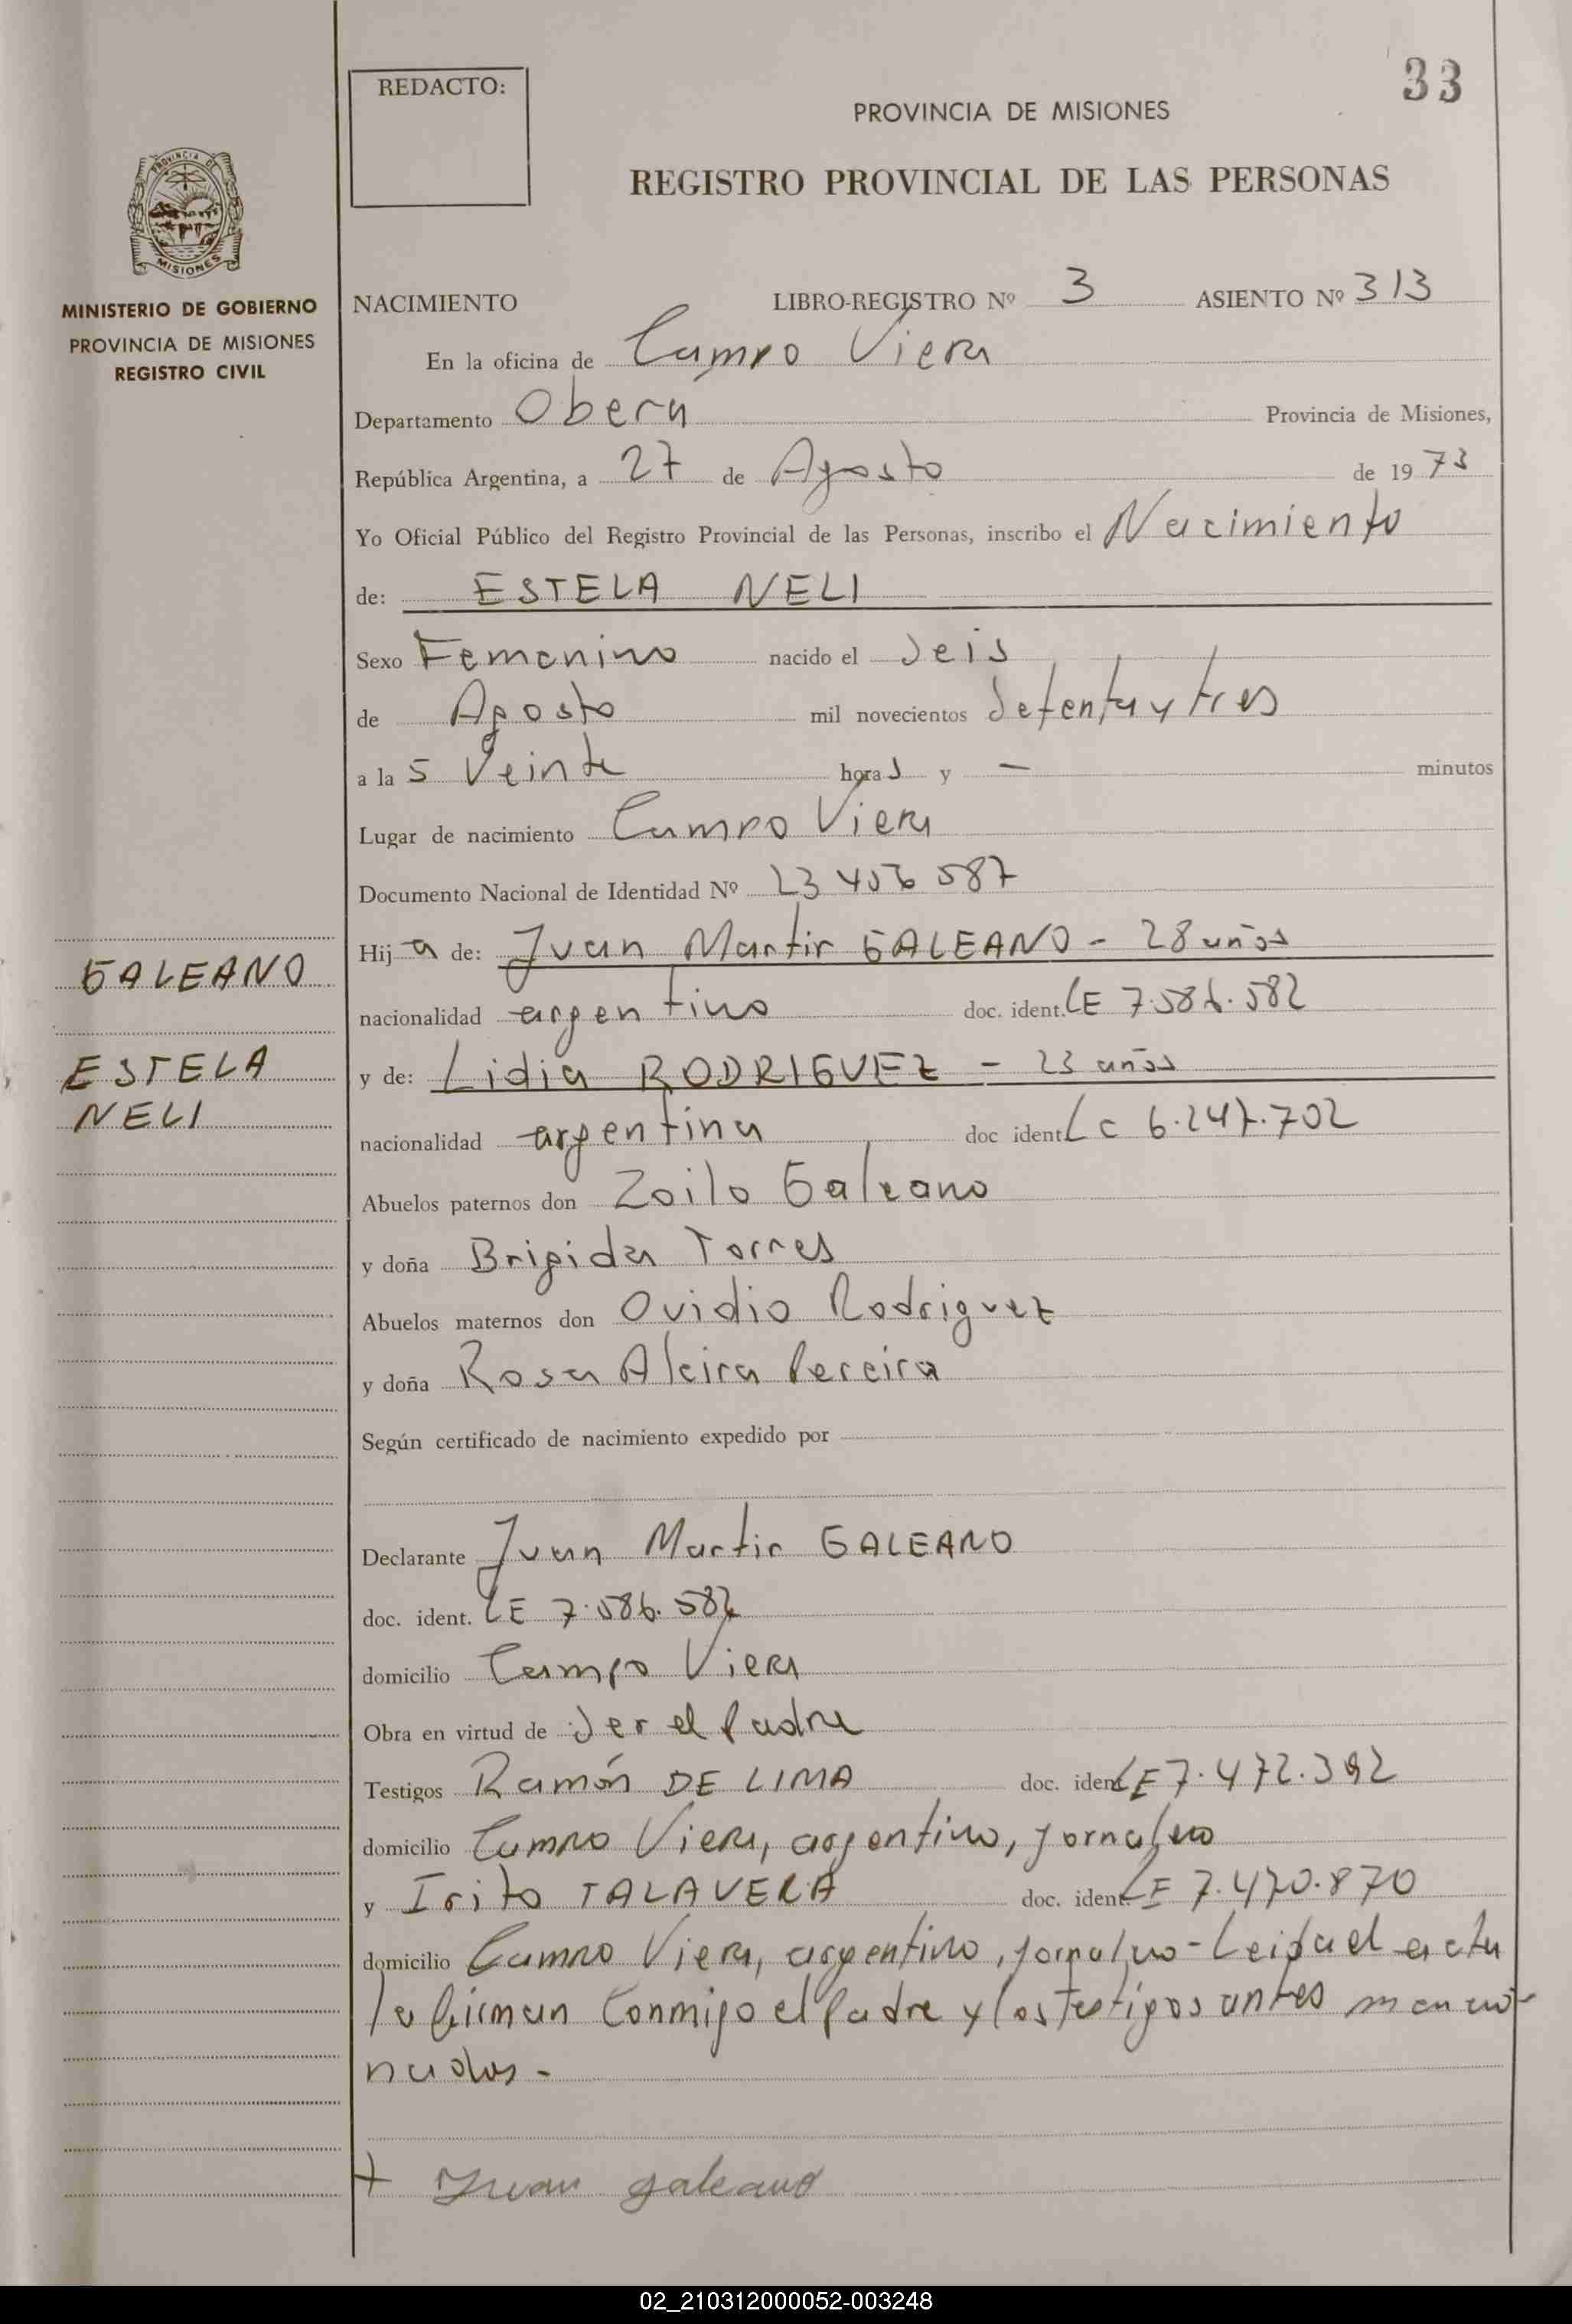 33
REDACTO:
PROVINCIA DE MISIONES
REGISTRO PROVINCIAL DE LAS PERSONAS
PROVINCIA DE
MISIONES
MINISTERIO DE GOBIERNO
PROVINCIA DE MISIONES
REGISTRO CIVIL
NACIMIENTO LIBRO-REGISTRO Nº 3 ASIENTO Nº 313
En la oficina de Campo Viera
Departamento Obera Provincia de Misiones,
República Argentina, a 27 de Agosto de 1973
Yo Oficial Público del Registro Provincial de las Personas, inscribo el Nacimiento
de: ESTELA NELI
Sexo Femenino nacido el Seis
de Agosto mil novecientos Setenta y tres
a la s Veinte horas y — minutos
Lugar de nacimiento Campo Viera
Documento Nacional de Identidad Nº 23 456 587
Hij a de: Juan Martir GALEANO - 28 años
GALEANO
nacionalidad argentino doc. ident. LE 7.586.582
ESTELA
y de: Lidia RODRIGUEZ - 23 años
NELI
nacionalidad argentina doc ident LC 6.247.702
Abuelos paternos don Zoilo Galeano
y doña Brigida Torres
Abuelos maternos don Ovidio Rodriguez
y doña Rosa Alcira Pereira
Según certificado de nacimiento expedido por
Declarante Juan Martir GALEANO
doc. ident. LE 7.586.582
domicilio Campo Viera
Obra en virtud de Ser el Padre
Testigos Ramón DE LIMA doc. ident LE 7.472.392
domicilio Campo Viera, argentino, jornalero
y Irito TALAVERA doc. ident. LE 7.470.870
domicilio Campo Viera, argentino, jornalero - Leida el acta
la firman Conmigo el Padre y los testigos antes mencio-
nados -
+ Juan galeano
02_210312000052-003248